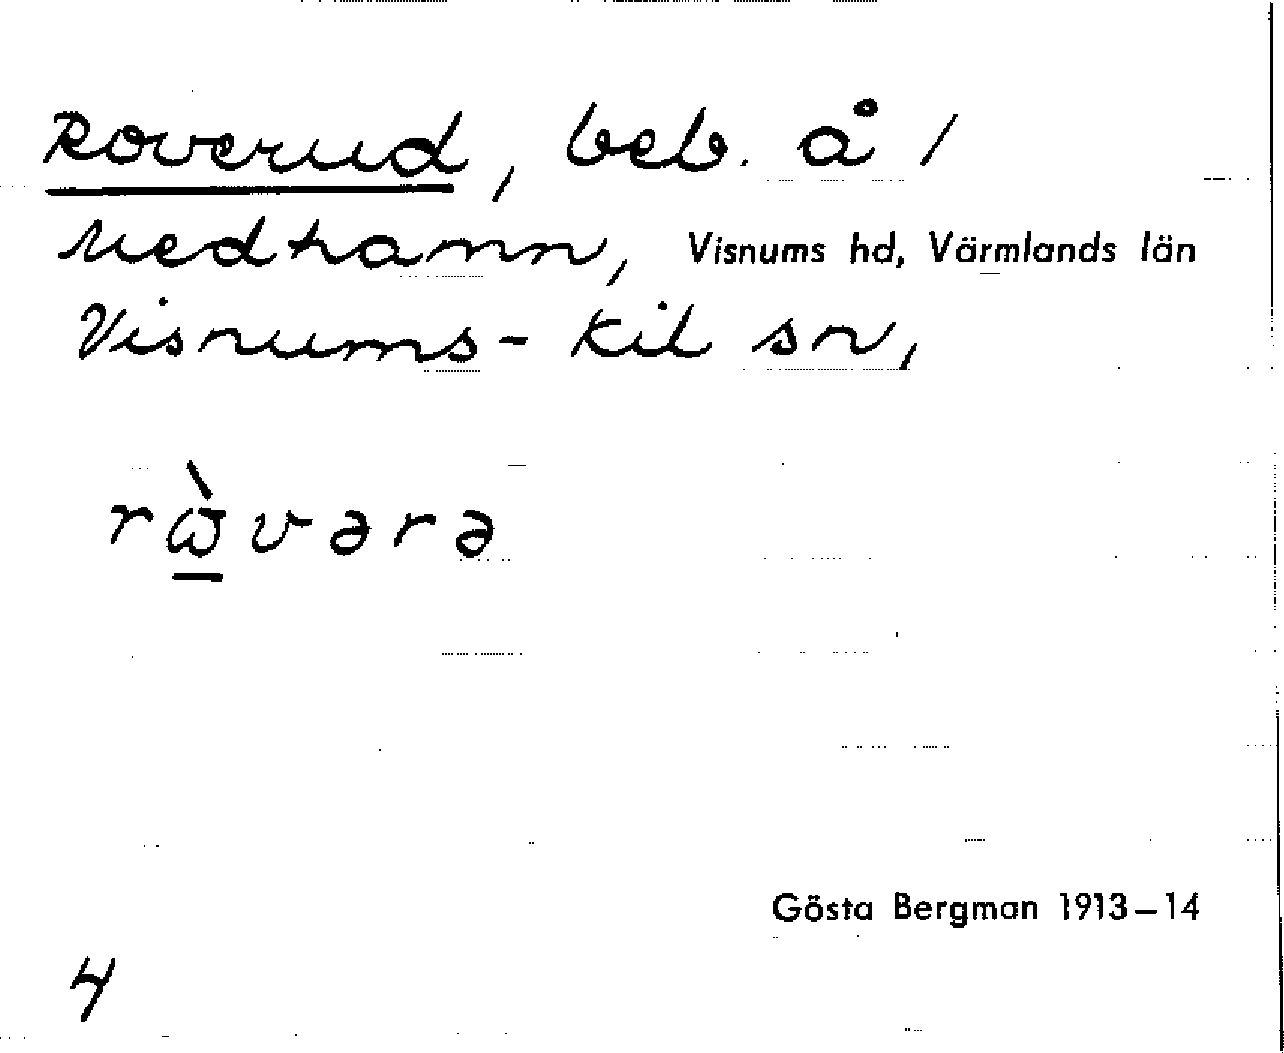 Roverud, beb. å /
Medhamn, Visnums hd, Värmlands län
Visnums-Kil sn,
rὼ̲vərə
Gösta Bergman 1913–14
4